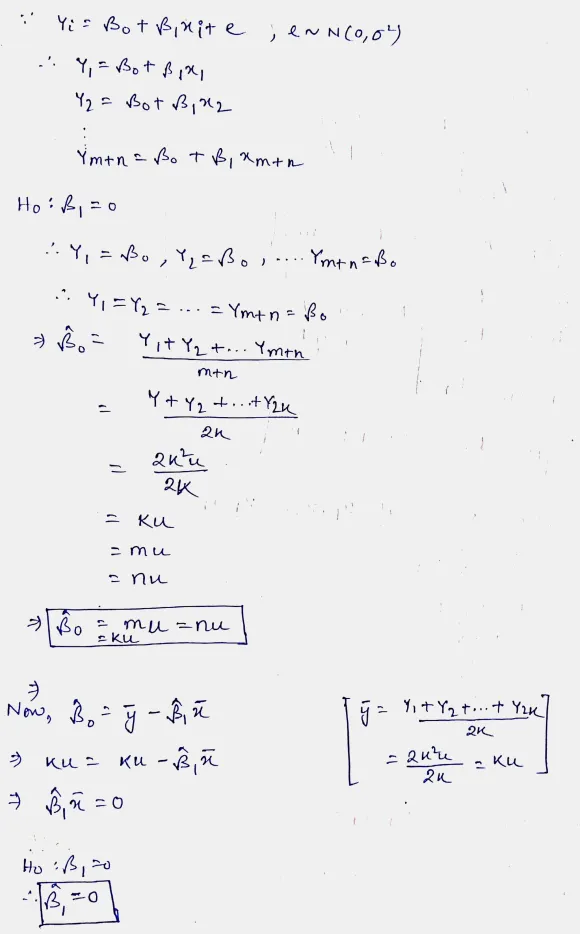 ∵ Yi = β₀ + β₁xi + e , e ~ N(0, σ²)
∴ Y₁ = β₀ + β₁x₁
Y₂ = β₀ + β₁x₂
⋮
Ym+n = β₀ + β₁xm+n
H₀ : β₁ = 0
∴ Y₁ = β₀ , Y₂ = β₀ , .... Ym+n = β₀
∴ Y₁ = Y₂ = ... = Ym+n = β₀
⇒ β̂₀ = Y₁ + Y₂ + ... Ym+n / m+n
= Y + Y₂ + ... + Y2K / 2K
= 2K²u / 2K
= Ku
= mu
= nu
⇒ β̂₀ = mu = nu
= Ku
⇒
Now, β̂₀ = ȳ - β̂₁x̄
⇒ Ku = Ku - β̂₁x̄
⇒ β̂₁x̄ = 0
[ ȳ = Y₁ + Y₂ + ... + Y2K / 2K
= 2K²u / 2K = Ku ]
H₀ : β₁ = 0
∴ β̂₁ = 0